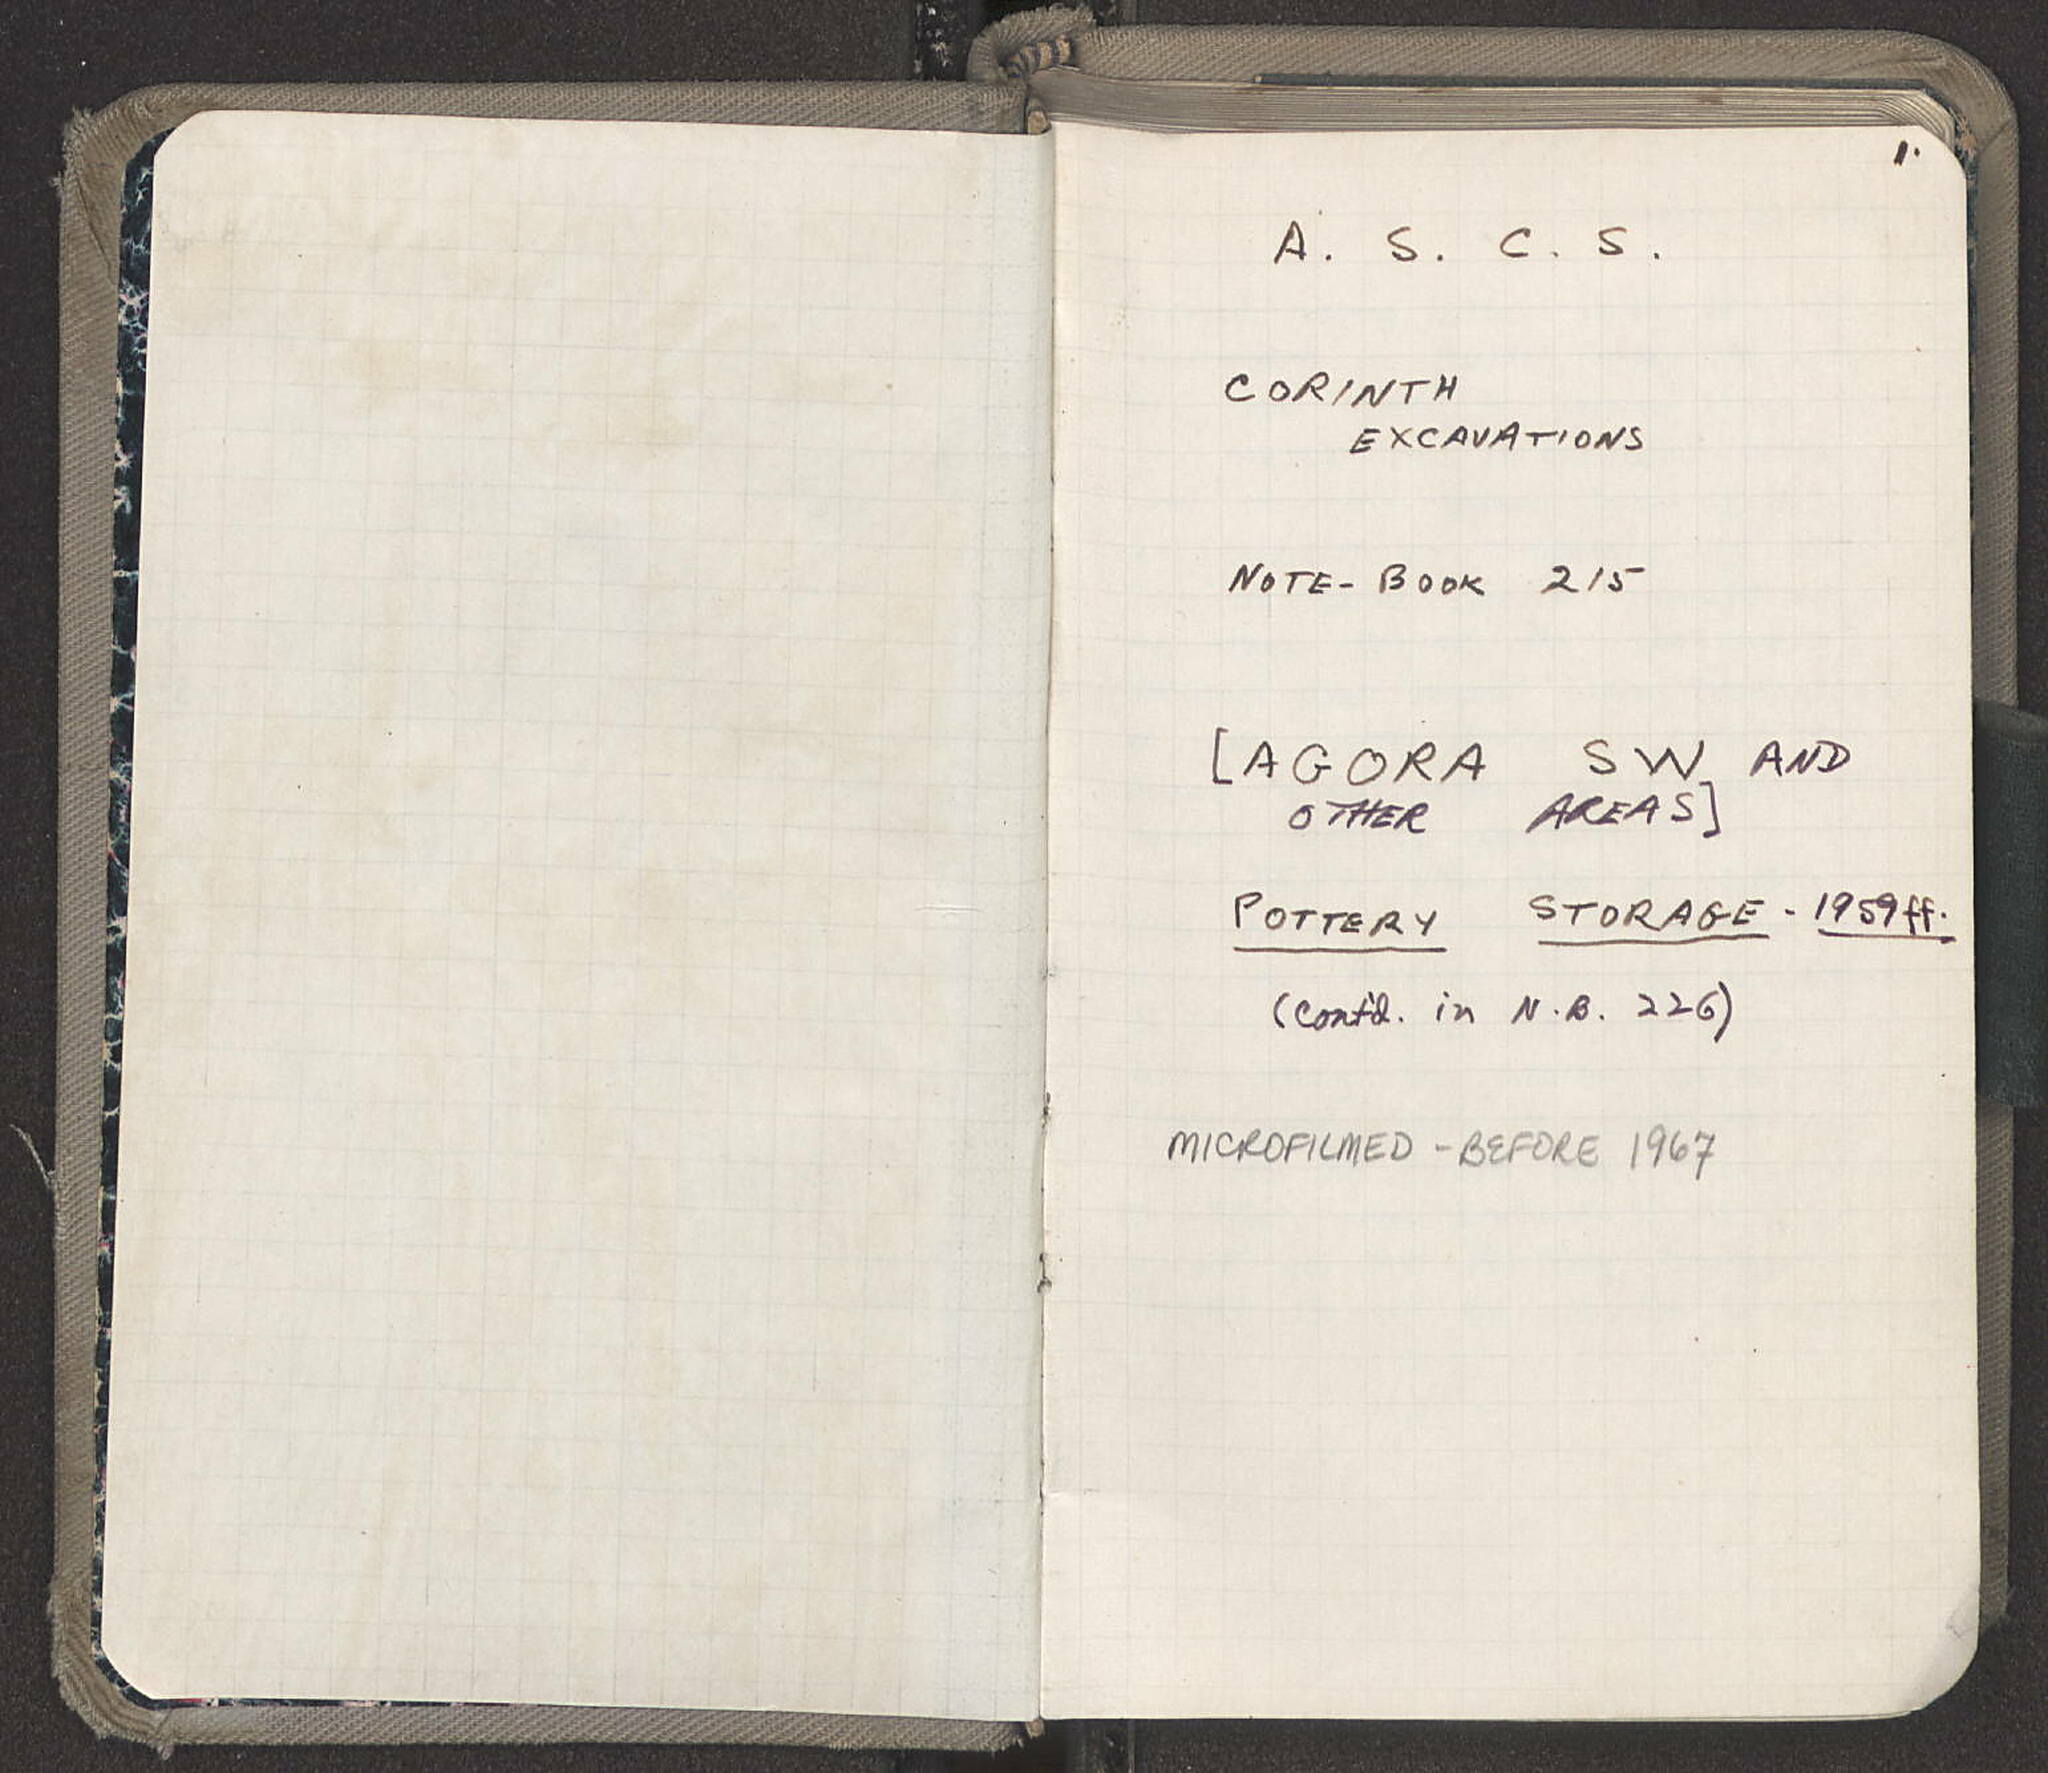 1.
A. S. C. S.
CORINTH
EXCAVATIONS
NOTE-BOOK 215
[AGORA SW AND
OTHER AREAS]
POTTERY STORAGE - 1959ff.
(Cont'd. in N.B. 226)
MICROFILMED - BEFORE 1967